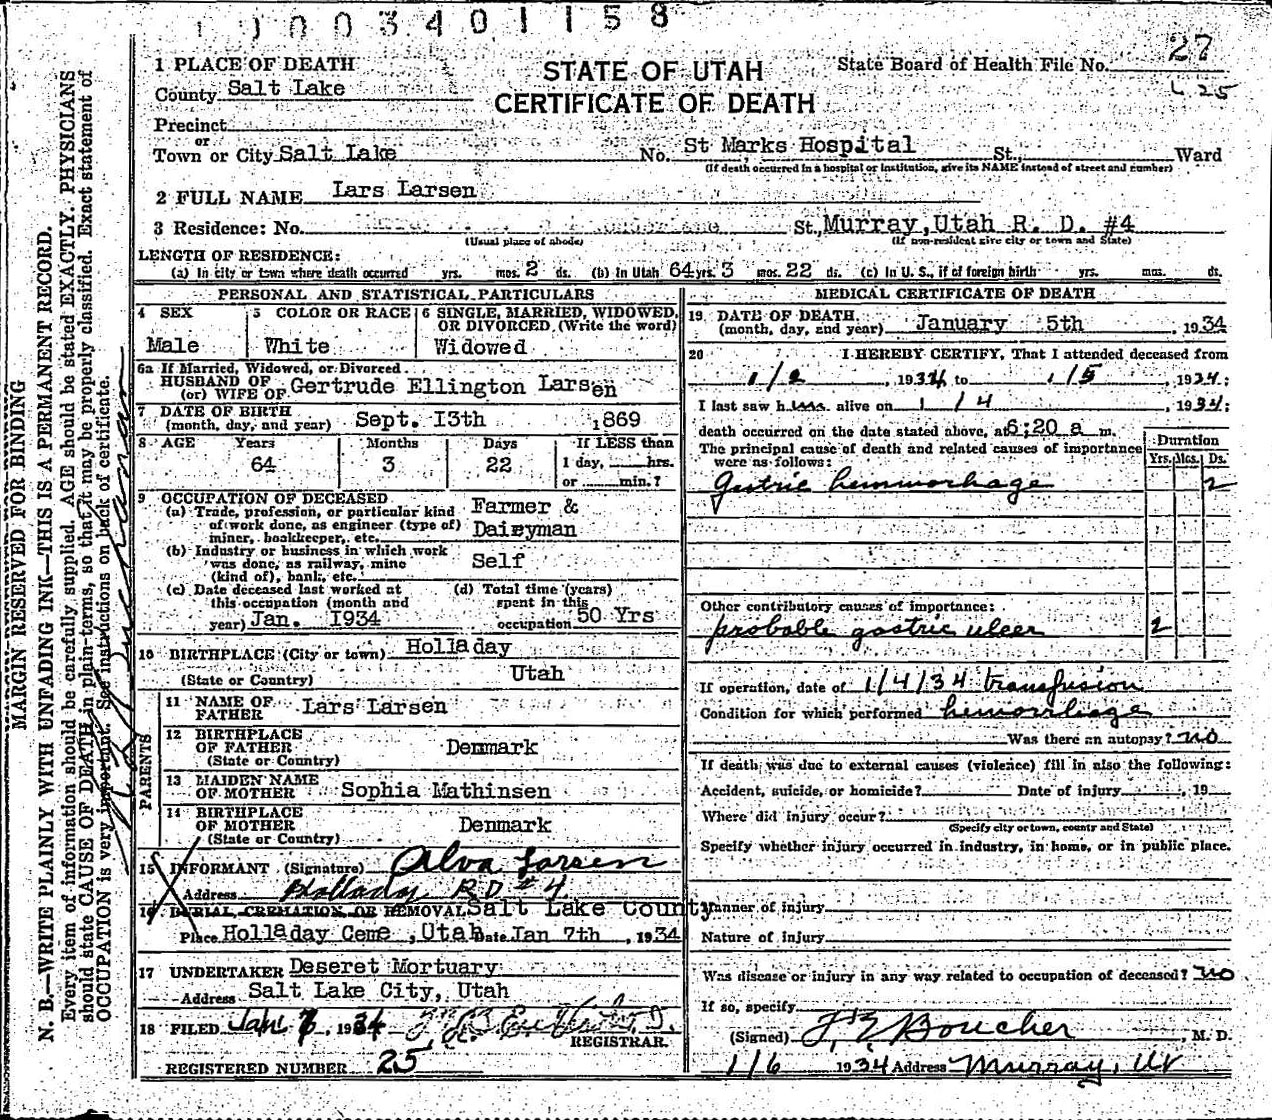 1003401158
1 PLACE OF DEATH
STATE OF UTAH
CERTIFICATE OF DEATH
State Board of Health File No. 27
25
County Salt Lake
Precinct
or
Town or City Salt Lake No. St Marks Hospital St., Ward
(If death occurred in a hospital or institution, give its NAME instead of street and number)
2 FULL NAME Lars Larsen
3 Residence: No. St., Murray, Utah R. D. #4
(Usual place of abode) (If non-resident give city or town and State)
LENGTH OF RESIDENCE:
(a) In city or town where death occurred yrs. mos. 2 ds. (b) In Utah 64 yrs. 3 mos. 22 ds. (c) In U. S., if of foreign birth yrs. mos. ds.
PERSONAL AND STATISTICAL PARTICULARS
4 SEX Male
5 COLOR OR RACE White
6 SINGLE, MARRIED, WIDOWED, OR DIVORCED. (Write the word)
Widowed
6a If Married, Widowed, or Divorced
HUSBAND OF
(or) WIFE OF Gertrude Ellington Larsen
7 DATE OF BIRTH
(month, day, and year) Sept. I3th 1869
8 AGE Years Months Days If LESS than
64 3 22 1 day, hrs.
or min.?
9 OCCUPATION OF DECEASED
(a) Trade, profession, or particular kind of work done, as engineer (type of) miner, bookkeeper, etc. Farmer & Daieyman
(b) Industry or business in which work was done, as railway, mine (kind of), bank, etc. Self
(c) Date deceased last worked at this occupation (month and year) Jan. I934
(d) Total time (years) spent in this occupation 50 Yrs
10 BIRTHPLACE (City or town) Holladay
(State or Country) Utah
PARENTS
11 NAME OF FATHER Lars Larsen
12 BIRTHPLACE OF FATHER Denmark
(State or Country)
13 MAIDEN NAME OF MOTHER Sophia Mathinsen
14 BIRTHPLACE OF MOTHER Denmark
(State or Country)
15 INFORMANT (Signature) Alva Larsen
Address Holladay R D # 4
16 BURIAL, CREMATION OR REMOVAL Salt Lake County
Place Holladay Ceme, Utah Date Jan 7th, 1934
17 UNDERTAKER Deseret Mortuary
Address Salt Lake City, Utah
18 FILED Jan 1934
REGISTRAR.
REGISTERED NUMBER 25
MEDICAL CERTIFICATE OF DEATH
19 DATE OF DEATH
(month, day, and year) January 5th, 1934
20 I HEREBY CERTIFY, That I attended deceased from
1/2, 1934 to 1/5 1934;
I last saw him alive on 1/4, 1934;
death occurred on the date stated above, at 6;20 a m.
The principal cause of death and related causes of importance were as follows:
Duration
Yrs. Mos. Ds.
Gastric hemmorhage 2
Other contributory causes of importance:
probable gastric ulcer 2
If operation, date of 1/4/34 transfusion
Condition for which performed hemorrhage
Was there an autopsy? no
If death was due to external causes (violence) fill in also the following:
Accident, suicide, or homicide? Date of injury, 19
Where did injury occur?
(Specify city or town, county and State)
Specify whether injury occurred in industry, in home, or in public place.
Manner of injury
Nature of injury
Was disease or injury in any way related to occupation of deceased? no
If so, specify
(Signed) J. E. Boucher, M. D.
1/6 1934 Address Murray, Ut
MARGIN RESERVED FOR BINDING
N. B.—WRITE PLAINLY WITH UNFADING INK—THIS IS A PERMANENT RECORD.
Every item of information should be carefully supplied. AGE should be stated EXACTLY. PHYSICIANS
should state CAUSE OF DEATH in plain terms, so that it may be properly classified. Exact statement of
OCCUPATION is very important. See instructions on back of certificate.